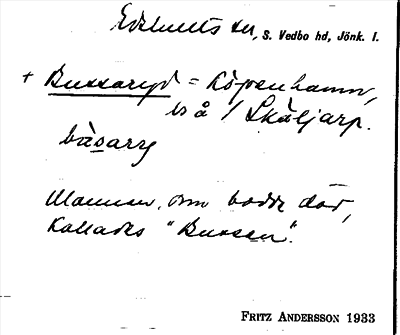 Edshults sn, S. Vedbo hd, Jönk. l.
+ Bussaryd = Köpenhamn,
ls å / Skäljarp.
båsarg
Mannen, som bodde där,
kallades "Bussen".
FRITZ ANDERSSON 1933